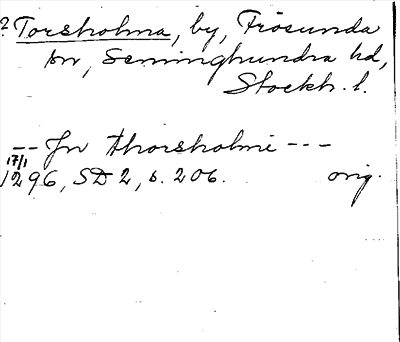 ? Torsholma, by, Frösunda
sn, Seminghundra hd,
Stockh. l.
-- Jn thorsholmi ---
17/1
1296, SD 2, s. 206. orig.